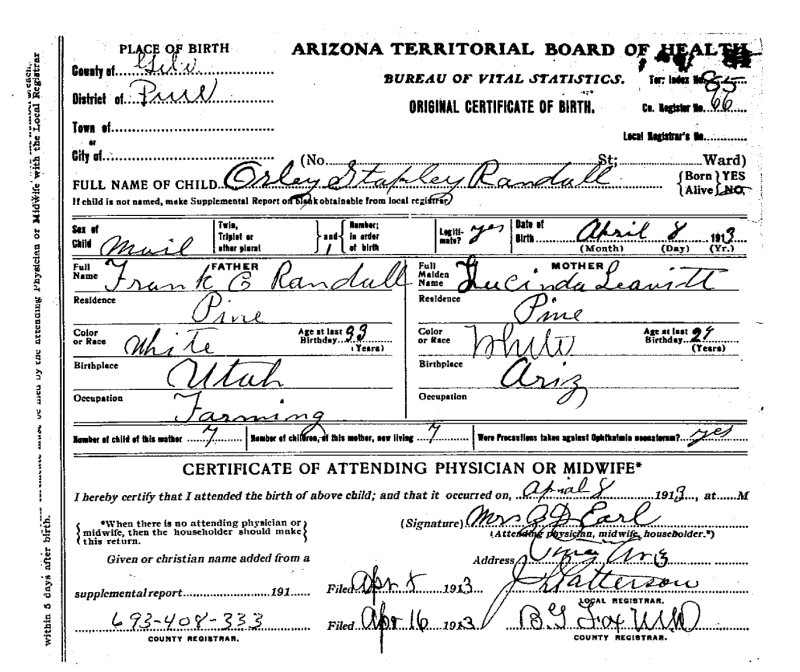 PLACE OF BIRTH
ARIZONA TERRITORIAL BOARD OF HEALTH
County of Gila
BUREAU OF VITAL STATISTICS.
Ter: Index No. 85
District of Pine
ORIGINAL CERTIFICATE OF BIRTH.
Co. Register No. 66
Town of
or
Local Registrar's No.
City of
(No. St; Ward)
FULL NAME OF CHILD Orley Stapley Randall
{Born } YES
{Alive } NO
If child is not named, make Supplemental Report on blank obtainable from local registrar)
Sex of Child Mail
Twin, Triplet or other plural } and { Number; in order of birth
Legiti-mate? yes
Date of Birth April 8 1913
(Month) (Day) (Yr.)
FATHER
Full Name Frank C Randall
MOTHER
Full Maiden Name Lucinda Leavitt
Residence Pine
Residence Pine
Color or Race White
Age at last Birthday 33 (Years)
Color or Race White
Age at last Birthday 29 (Years)
Birthplace Utah
Birthplace Ariz
Occupation Farming
Occupation
Number of child of this mother 7
Number of children, of this mother, now living 7
Were Precautions taken against Ophthalmia neonatorum? yes
CERTIFICATE OF ATTENDING PHYSICIAN OR MIDWIFE*
I hereby certify that I attended the birth of above child; and that it occurred on, Apirial 8 1913, at M
{ *When there is no attending physician or midwife, then the householder should make this return. }
(Signature) Mrs Earl
(Attending physician, midwife, householder.*)
Given or christian name added from a
Address Ariz
supplemental report 191
Filed Apr 8 1913
J Patterson
LOCAL REGISTRAR.
693-408-333
COUNTY REGISTRAR.
Filed Apr 16 1913
B G Fox M D
COUNTY REGISTRAR.
must be filed by the attending Physician or MidWife with the Local Registrar
within 5 days after birth.